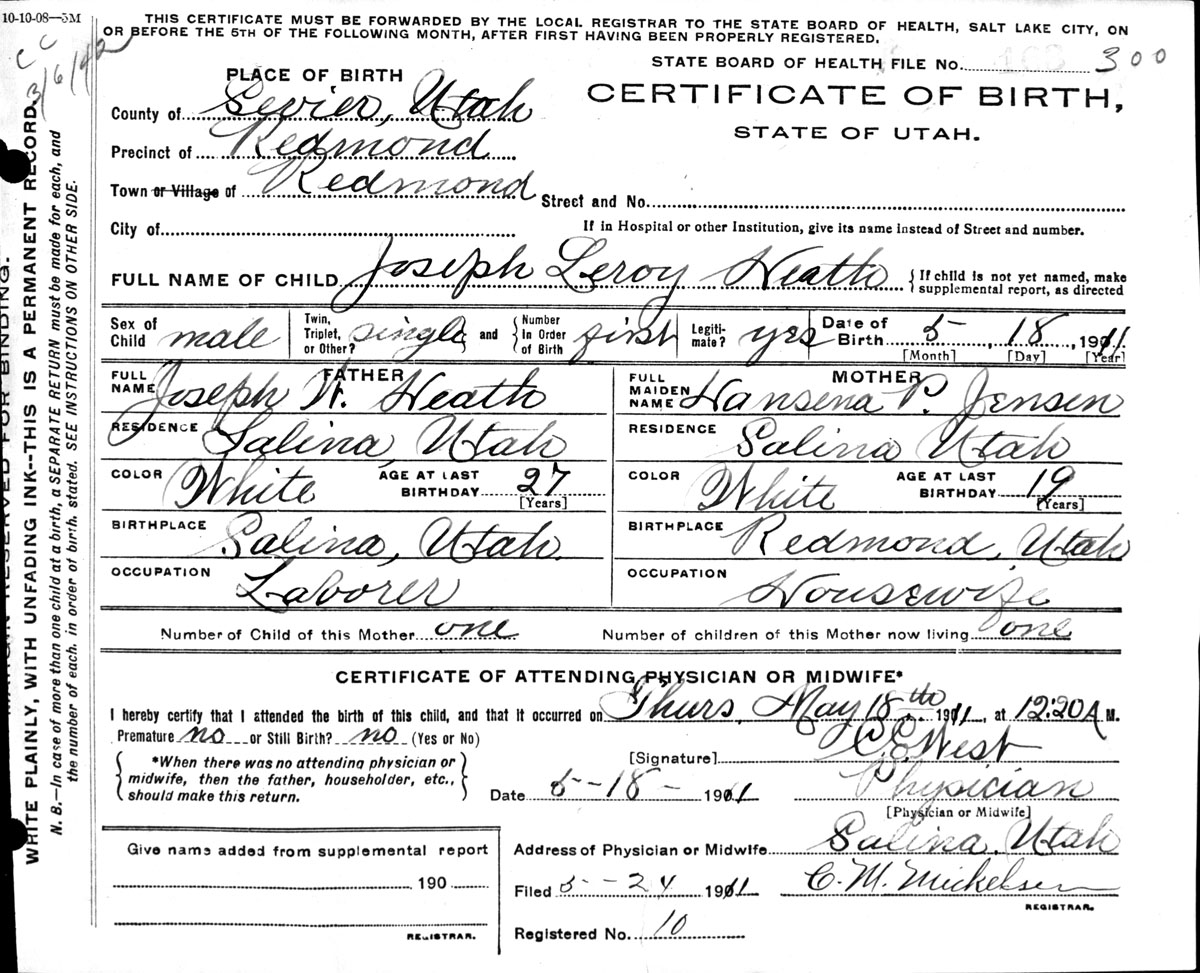 10-10-08—5M
THIS CERTIFICATE MUST BE FORWARDED BY THE LOCAL REGISTRAR TO THE STATE BOARD OF HEALTH, SALT LAKE CITY, ON
OR BEFORE THE 5TH OF THE FOLLOWING MONTH, AFTER FIRST HAVING BEEN PROPERLY REGISTERED.
CC
3/6/42
STATE BOARD OF HEALTH FILE No. 300
CERTIFICATE OF BIRTH,
STATE OF UTAH.
PLACE OF BIRTH
County of Sevier, Utah
Precinct of Redmond
Town or Village of Redmond
Street and No.
City of
If in Hospital or other Institution, give its name instead of Street and number.
FULL NAME OF CHILD Joseph Leroy Heath { If child is not yet named, make supplemental report, as directed
Sex of Child male Twin, Triplet, or Other? single and { Number In Order of Birth first Legitimate? yes Date of Birth 5, 18, 1911
[Month] [Day] [Year]
FATHER
FULL NAME Joseph W. Heath
RESIDENCE Salina, Utah
COLOR White AGE AT LAST BIRTHDAY 27 [Years]
BIRTHPLACE Salina, Utah.
OCCUPATION Laborer
MOTHER
FULL MAIDEN NAME Hansena P. Jensen
RESIDENCE Salina Utah
COLOR White AGE AT LAST BIRTHDAY 19 [Years]
BIRTHPLACE Redmond, Utah
OCCUPATION Housewife
Number of Child of this Mother one Number of children of this Mother now living one
CERTIFICATE OF ATTENDING PHYSICIAN OR MIDWIFE*
I hereby certify that I attended the birth of this child, and that it occurred on Thurs, May 18th 1911, at 12:20 A M.
Premature no or Still Birth? no (Yes or No)
[Signature] C.E. West
{ *When there was no attending physician or
midwife, then the father, householder, etc.,
should make this return. }
Date 5-18- 1911 Physician
[Physician or Midwife]
Address of Physician or Midwife Salina, Utah
Filed 5-24 1911 C. M. Mickelsen
REGISTRAR.
Registered No. 10
Give name added from supplemental report
190
REGISTRAR.
MARGIN RESERVED FOR BINDING.
WRITE PLAINLY, WITH UNFADING INK--THIS IS A PERMANENT RECORD.
N. B.—In case of more than one child at a birth, a SEPARATE RETURN must be made for each, and
the number of each, in order of birth, stated. SEE INSTRUCTIONS ON OTHER SIDE.